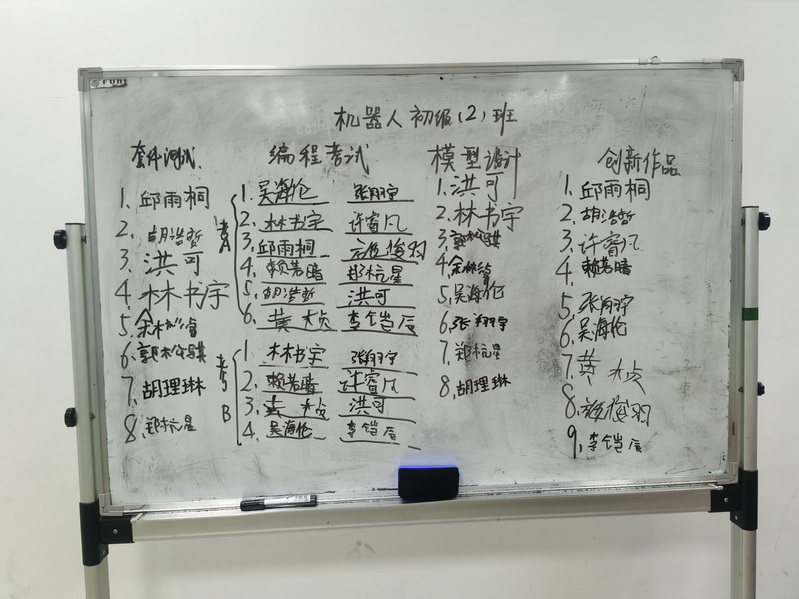 机器人初级(2)班
套件测试
1.邱雨桐
2.胡浩哲
3.洪可
4.林书宇
5.余
6.郭
7.胡理琳
8.郑杭星
编程考试
考A
1.吴海伦 张翔宇
2.林书宇 许睿凡
3.邱雨桐 俊羽
4.赖若晴 郑杭星
5.胡浩哲 洪可
6.黄桢 李铠辰
考B
1.林书宇 张翔宇
2.赖若晴 许睿凡
3.黄桢 洪可
4.吴海伦 李铠辰
模型设计
1.洪可
2.林书宇
3.郭
4.余
5.吴海伦
6.张翔宇
7.郑杭星
8.胡理琳
创新作品
1.邱雨桐
2.胡浩哲
3.许睿凡
4.赖若晴
5.张翔宇
6.吴海伦
7.黄桢
8.俊羽
9.李铠辰